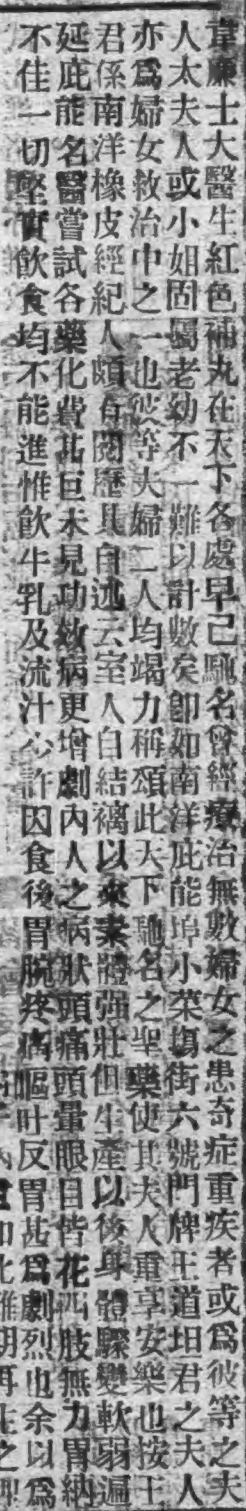 韋廉士大醫生紅色補丸在天下各處早已馳名曾經療治無數婦女之患奇症重疾者或爲彼等之夫
人太夫人或小姐固屬老幼不一難以計數矣卽如南洋庇能埠小菜塲街六號門牌王道坦君之夫人
亦爲婦女救治中之一也彼等夫婦二人均竭力稱頌此天下馳名之聖藥使其夫人重享安樂也按王
君係南洋橡皮經紀人頗有閱歷其自述云室人自結褵以來素體强壯但生產以後身體驟變軟弱遍
延庇能名醫嘗試各藥化費甚巨未見功效病更增劇內人之病狀頭痛頭暈眼目皆花四肢無力胃納
不佳一切堅實飲食均不能進惟飲牛乳及流汁少許因食後胃脘疼痛嘔吐反胃甚爲劇烈也余以爲